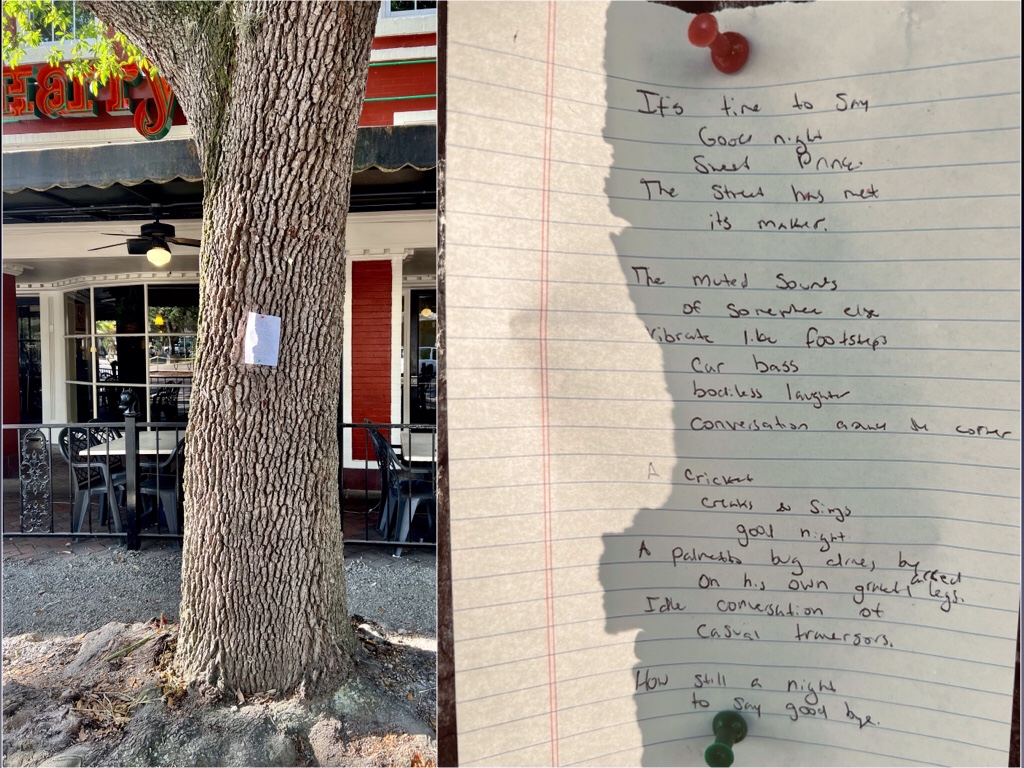 Harry
It's time to say
Good night
Sweet Prince.
The street has met
its maker.
The muted sounds
of someplace else
vibrate like footsteps
Car bass
bodiless laughter
conversation around the corner
A cricket
creaks & sings
good night
A palmetto bug by
on his own legs.
Idle conversation of
casual traversors.
How still a night
to say good bye.